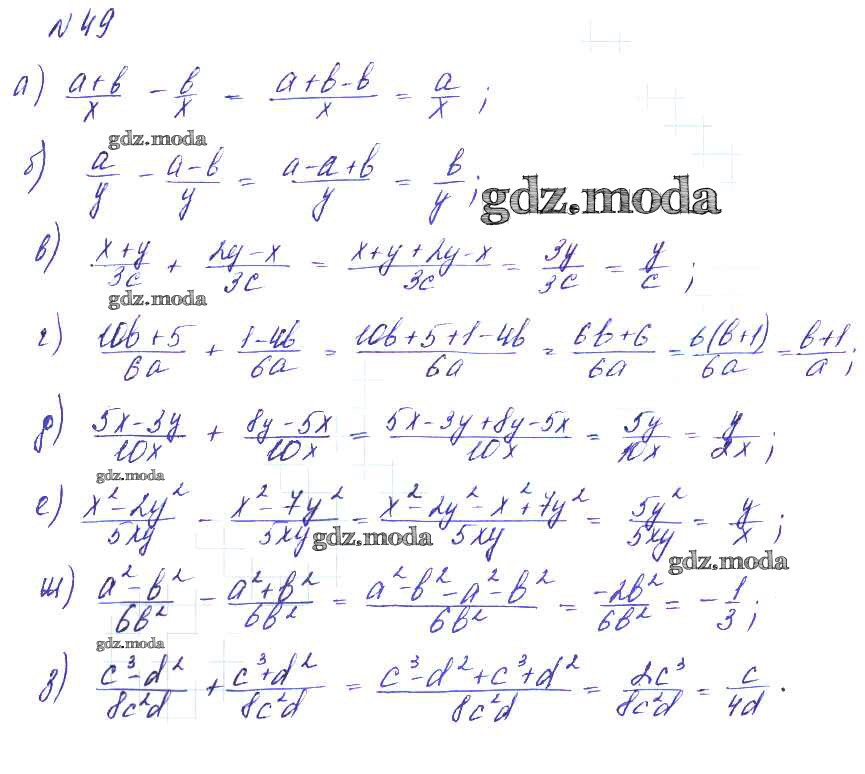 № 49
а) (a+b)/x − b/x = (a+b−b)/x = a/x ;
gdz.moda
б) a/y − (a−b)/y = (a−a+b)/y = b/y ;
gdz.moda
в) (x+y)/3c + (2y−x)/3c = (x+y+2y−x)/3c = 3y/3c = y/c ;
gdz.moda
г) (10b+5)/6a + (1−4b)/6a = (10b+5+1−4b)/6a = (6b+6)/6a = 6(b+1)/6a = (b+1)/a ;
д) (5x−3y)/10x + (8y−5x)/10x = (5x−3y+8y−5x)/10x = 5y/10x = y/2x ;
gdz.moda
е) (x²−2y²)/5xy − (x²−7y²)/5xy = (x²−2y²−x²+7y²)/5xy = 5y²/5xy = y/x ;
gdz.moda
gdz.moda
ж) (a²−b²)/6b² − (a²+b²)/6b² = (a²−b²−a²−b²)/6b² = −2b²/6b² = −1/3 ;
gdz.moda
з) (c³−d²)/8c²d + (c³+d²)/8c²d = (c³−d²+c³+d²)/8c²d = 2c³/8c²d = c/4d .